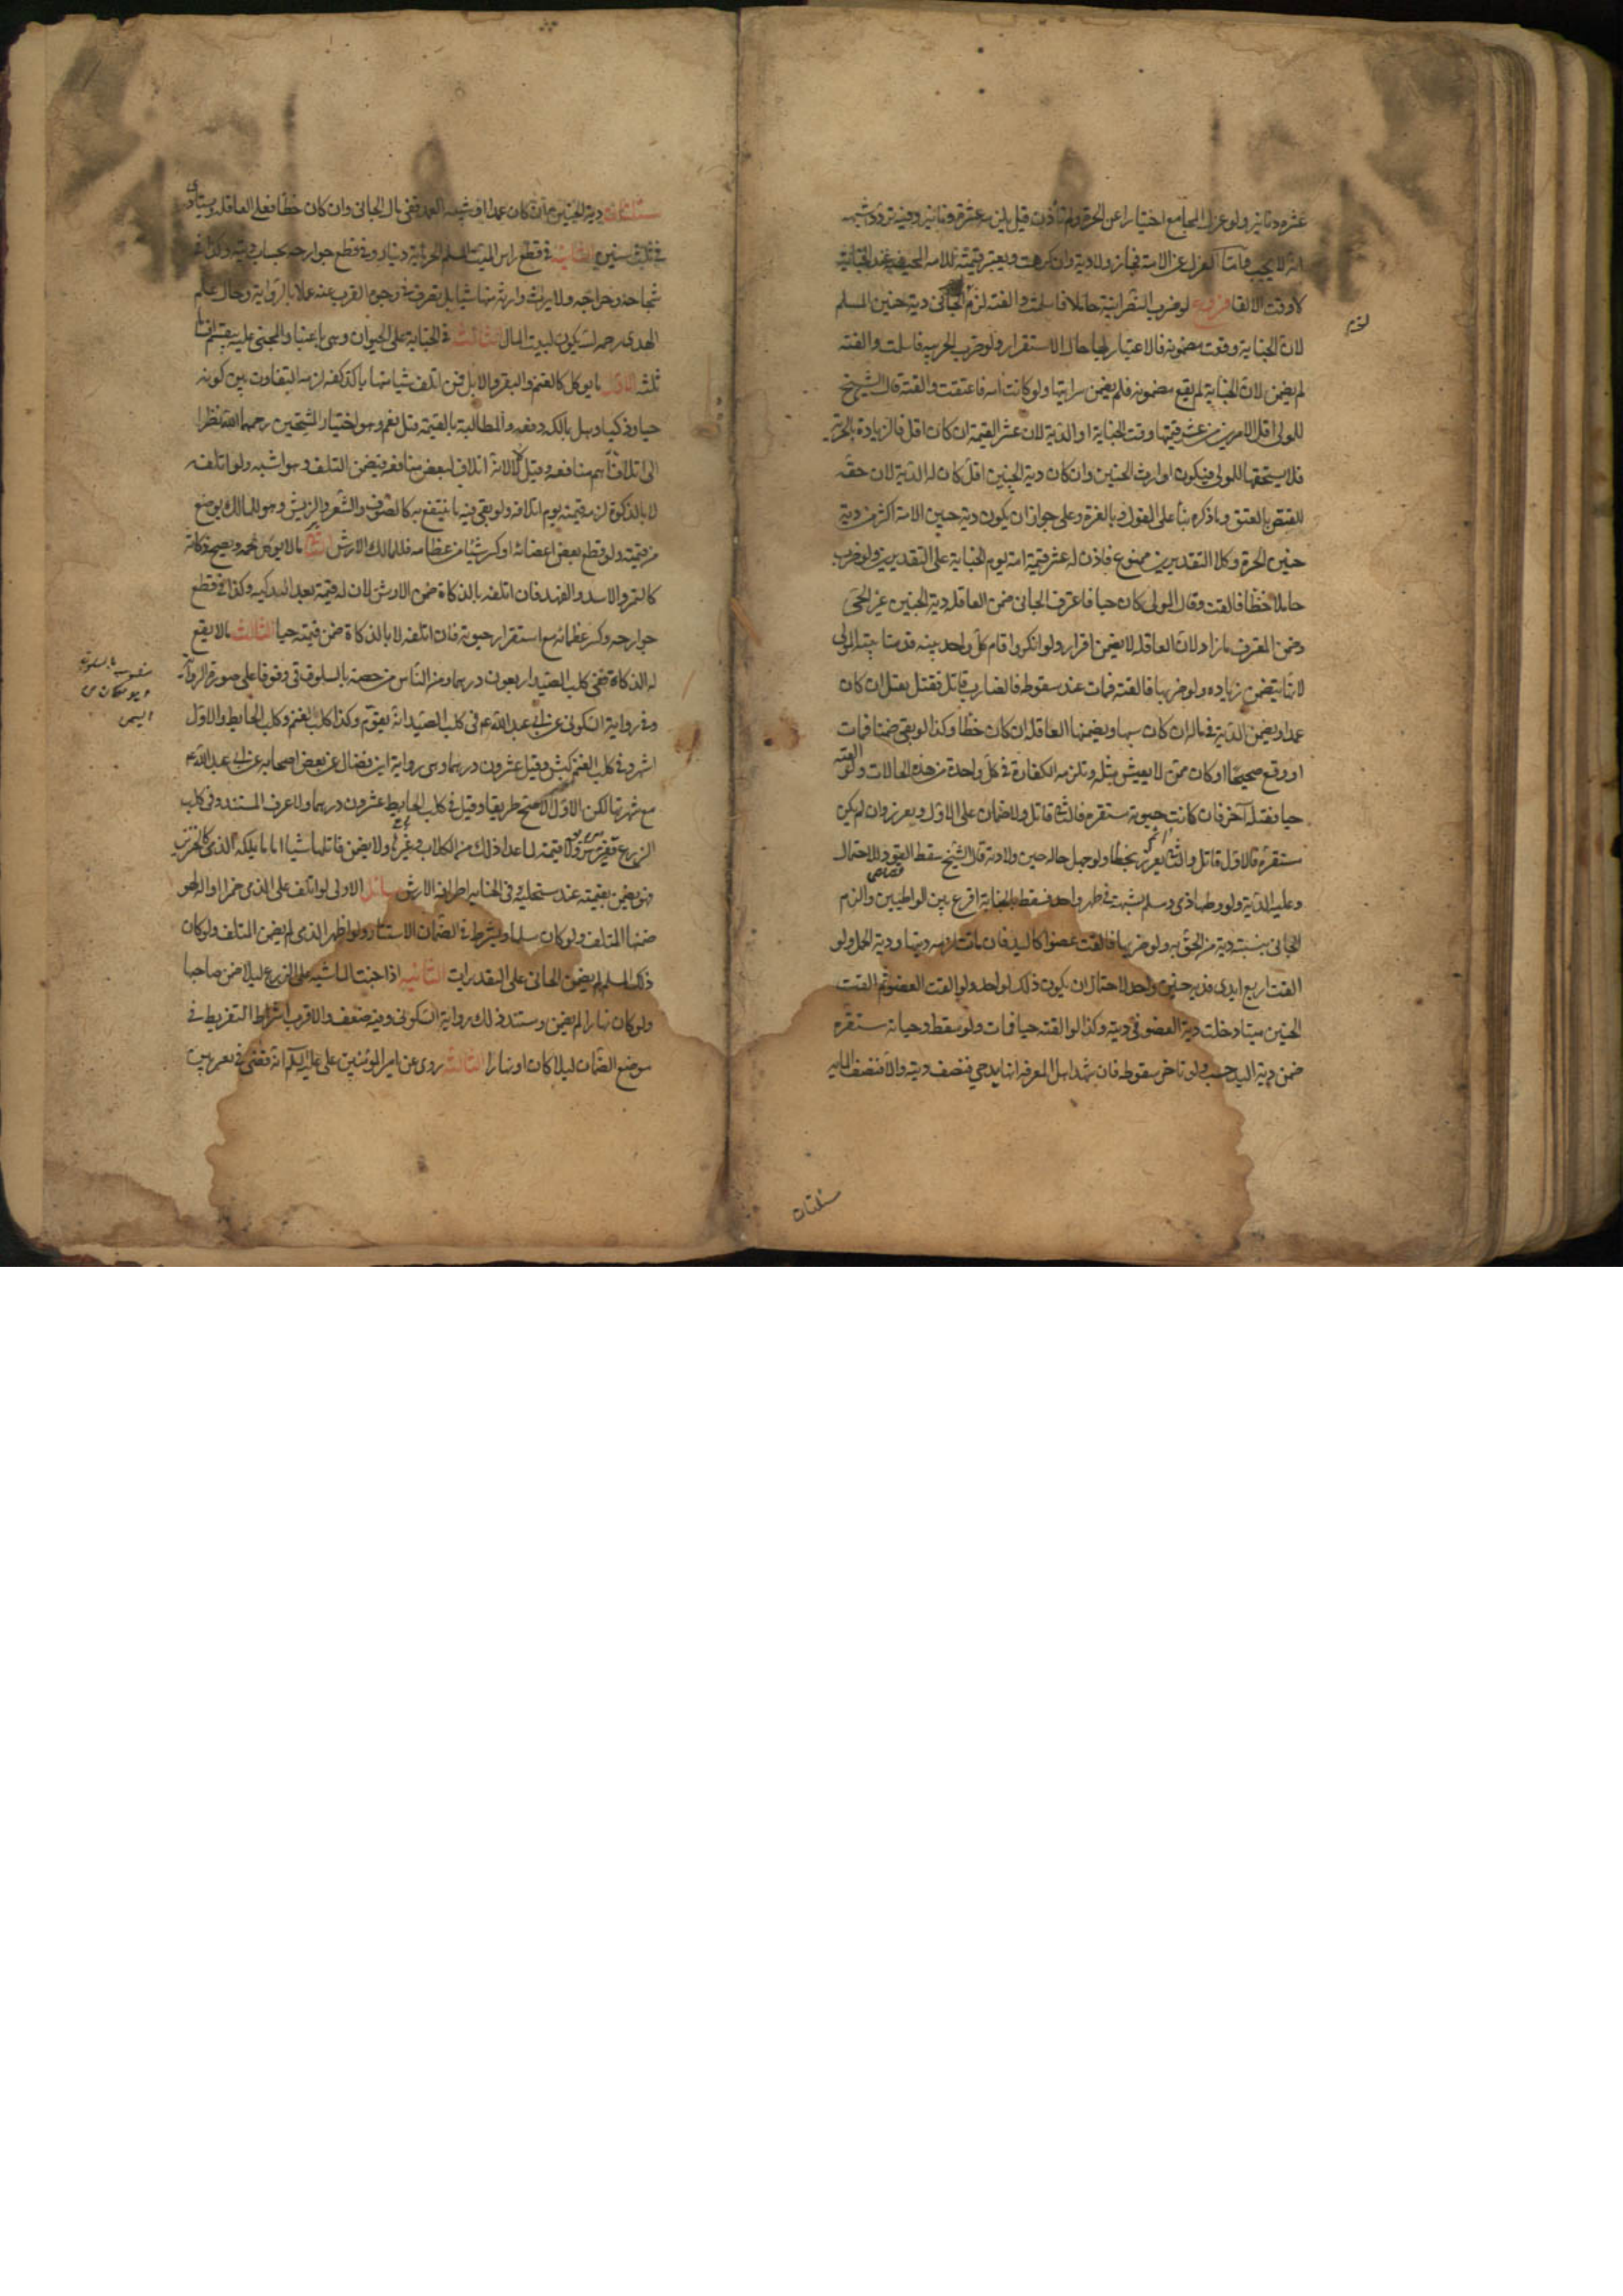 عشرة دنانير ولو عزل المجامع اختيارا عن الحرة ولم تأذن قيل يلزمه عشرة دنانير وفيه تردد اشبهه
انه لا يجب واما العزل عن الامة فجائز ولا دية وان كرهت ويعتبر قيمة الامة المجهضة عند الجناية
لا وقت الالقا فروع لو ضرب النصرانية حاملا فاسلمت والقته لزم الجاني دية جنين المسلم
لان الجناية وقعت مضمونة فالاعتبار بها حال الاستقرار ولو ضرب الحربية فاسلمت والقته
لم يضمن لان الجناية لم يقع مضمونة فلم يضمن سرايتها ولو كانت امة فاعتقت والقته قال الشيخ
للمولى اقل الامرين من عشر قيمتها وقت الجناية او الدية لان عشر القيمة ان كان اقل فالزيادة بالحرية
فلا يستحقها المولى فيكون لوارث الجنين وان كان دية الجنين اقل كان له الدية لان حقه
نقص بالعتق وما ذكره بنا على القول بالغرة وعلى جواز ان يكون دية جنين الامة اكثر من دية
جنين الحرة وكلا التقديرين ممنوع فاذن له عشر قيمة امه يوم الجناية على التقديرين ولو ضرب
حاملا خطأ فالقت وقال الولي كان حيا فاعترف الجاني ضمن العاقلة دية الجنين غير الحي
وضمن المعترف ما زاد لان العاقلة لا يضمن اقرارا ولو انكر واقام كل واحد بينة قدمنا بينة الولي
لانها يتضمن زيادة ولو ضربها فالقته فمات عند سقوطه فالضارب قاتل فقتل يقتل ان كان
عمدا ويضمن الدية في ماله ان كان شبيها ويضمنها العاقلة ان كان خطأ وكذا لو بقى ضمنا فمات
او وقع صحيحا وكان ممن لا يعيش مثله وتلزمه الكفارة في كل واحدة من هذه الحالات ولو القته
حيا فقتله آخر فان كانت حيوته مستقرة فالثاني قاتل ولا ضمان على الاول ويعزر وان لم يكن
مستقرة فالاول قاتل والثاني آثم يعزر بخطأه ولو جهل حاله حين ولادته قال الشيخ سقط القود للاحتمال
وعليه الدية ولو وطئها ذمي ومسلم بشبهة في طهر واحد فسقط بالجناية اقرع بين الواطيين والزم
الجاني بنسبة دية من الحق به ولو ضربها فالقت عضوا كاليد فان ماتت لزمه ديتها ودية الحمل ولو
القت اربع ايدي فدية جنين واحد لاحتمال ان يكون ذلك لواحد ولو القت العضو ثم القت
الجنين ميتا دخلت دية العضو في ديته وكذا لو القته حيا فمات ولو سقط وحياته مستقرة
ضمن دية اليد حسب ولو تاخر سقوطه فان شهد اهل المعرفة انها يد حي فنصف ديته والا فنصف المائة
مسئلتان
مسئلتان دية الجنين ان كان عمدا او شبيه العمد ففي مال الجاني وان كان خطأ فعلى العاقلة ويستادى
في ثلث سنين الثانية في قطع راس الميت المسلم الحر مائة دينار وفي قطع جوارحه بحساب ديته وكذا في
شجاجه وجراحه ولا يرث وارثه منها شيئا بل يصرف في وجوه القرب عنه عملا بالرواية وقال علم
الهدى رحمه الله يكون لبيت المال الثالثة في الجناية على الحيوان وهي باعتبار المجني عليه ينقسم اقساما
ثلثة الاول ما يوكل كالغنم والبقر والابل فمن اتلف شيئا منها بالذكاة لزمه التفاوت بين كونه
حيا وذكيا وهل لمالكه دفعه والمطالبة بالقيمة قيل نعم وهو اختيار الشيخين رحمهما الله نظرا
الى اتلاف اهم منافعه وقيل لا لانه اتلاف لبعض منافعه فيضمن التلف وهو اشبه ولو اتلفه
لا بالذكوة لزمه قيمته يوم اتلافه ولو بقى فيه ما ينتفع به كالصوف والشعر والريش وهو للمالك يوضع
من قيمته ولو قطع بعض اعضائه او كسر شيئا من عظامه فللمالك الارش الثاني ما لا يوكل لحمه ويصح ذكاته
كالنمر والاسد والفهد فان اتلفه بالذكاة ضمن الارش لان له قيمة بعد التذكية وكذا في قطع
جوارحه وكسر عظامه مع استقرار حيوته فان اتلفه لا بالذكاة ضمن قيمته حيا الثالث ما لا يقع
له الذكاة ففي كلب الصيد اربعون درهما ومن الناس من خصه بالسلوقي وقوفا على صورة الرواية
وفي رواية السكوني عن ابي عبد الله ع في كلب الصيد انه يقوم وكذا كلب الغنم وكلب الحايط والاول
اشهر وفي كلب الغنم كبش وقيل عشرون درهما وهي رواية ابن فضال عن بعض اصحابه عن ابي عبد الله ع
مع شهرتها لكن الاول اصح طريقا وقيل في كلب الحايط عشرون درهما ولا اعرف المستند وفي كلب
الزرع قفيز من بر ولا قيمة لما عدا ذلك من الكلاب وغيرها ولا يضمن قاتلها شيئا اما ما يملكه الذمي كالخنزير
فهو يضمن بقيمته عند مستحليه وفي الجناية على اطرافه الارش مسائل الاولى لو اتلف على الذمي خمرا او آلة لهو
ضمنها المتلف ولو كان مسلما ويشترط في الضمان الاستتار ولو اظهر الذمي لم يضمن المتلف ولو كان
ذلك لمسلم لم يضمن الجاني على التقديرات الثانية اذا جنت الماشية على الزرع ليلا ضمن صاحبها
ولو كان نهارا لم يضمن ومستند ذلك رواية السكوني وفيه ضعف والاقرب اشتراط التفريط في
موضع الضمان ليلا كان او نهارا الثالثة روى عن امير المؤمنين علي عليه السلام انه قضى في بعير بين